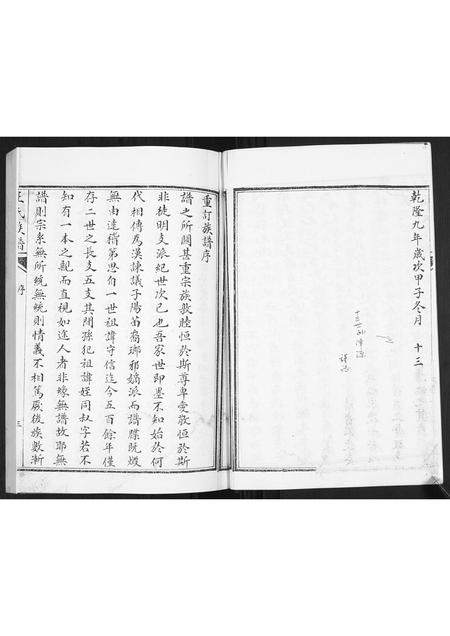 乾隆九年歲次甲子冬月 十三
十三世孫
謹志
重訂族譜序
譜之所關甚重宗族敦睦恒於斯尊卑愛敬恒於斯
非徒明支派紀世次已也吾家世即墨不知始於何
代相傳為漢諫議子陽苗裔瑯邪嫡派而譜牒既燬
無由達稽第思自一世祖諱守信迄今五百餘年僅
存二世之長支五支其間孫犯祖諱姪同叔字若不
知有一本之親而直視如途人者非緣無譜故耶無
譜則宗系無所統無統則情義不相篤厥後族數漸
王氏族譜 序 三